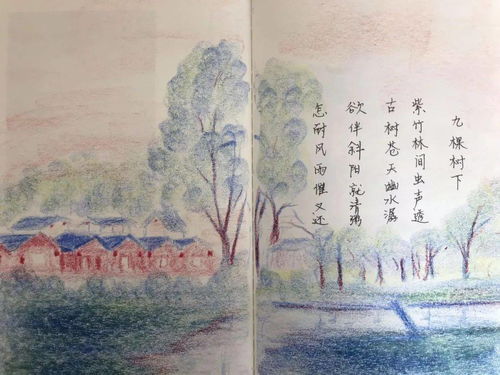 九棵树下
紫竹林间虫声透
古树苍天幽水潺
欲伴斜阳就清粥
怎耐风雨催又还